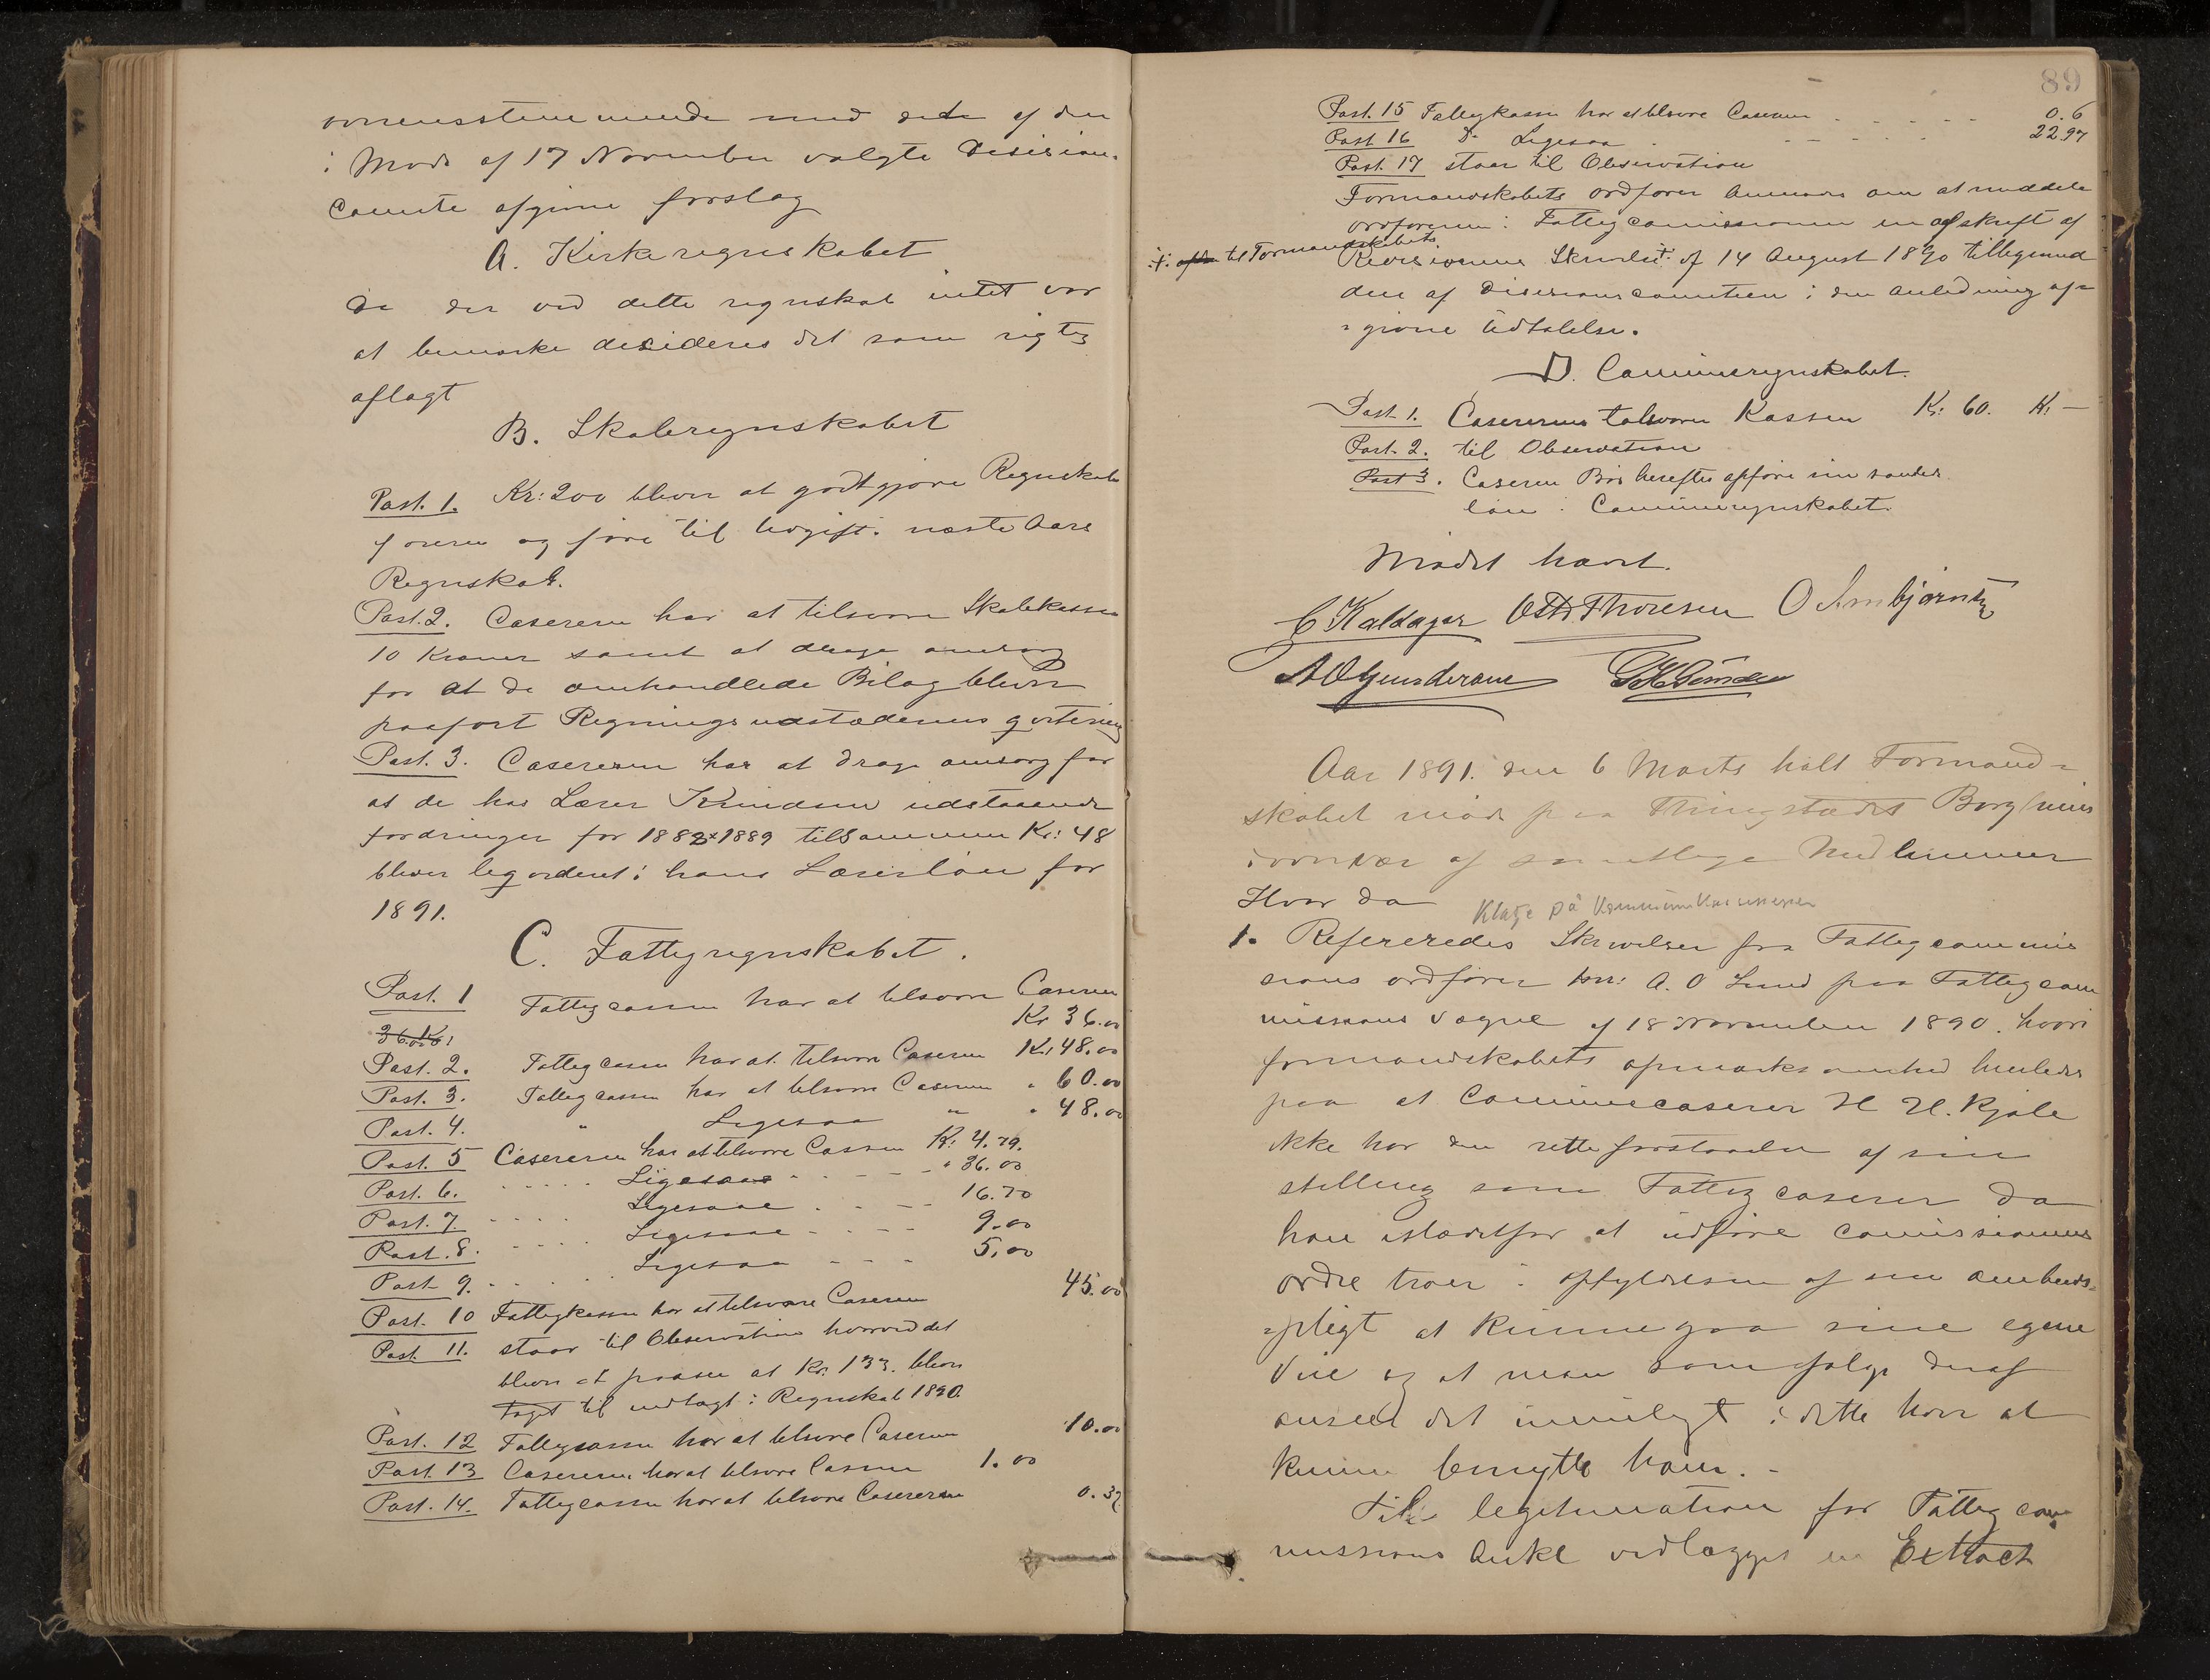 overensstemmende med det af den
i Møde af 17 November valgte Desisions
Comite afgivne forslag
A. Kirkeregnskabet
Da der ved dette regnskab intet var
at bemærke desideres det som rigtig
aflagt
B. Skoleregnskabet
Post. 1. Kr: 200 bliver at godtgjøre Regnskabs
føreren og føre til Udgift i næste Aars
Regnskab.
Post. 2. Casereren har at tilsvare Skolekassen
10 Kroner samt at drage omsorg
for at de omhandlede Bilag bliver
paaført Regningsudstædernes qvitering
Post. 3. Casereren har at drage omsorg for
at de hos Lærer Knudsen udstaaende
fordringer for 1882 + 1889 tilsammen Kr: 48
bliver liqvideret i hans Læreløn for
1891.
C. Fattigregnskabet.
Post. 1 Fattigcassen har at tilsvare Caseren
Kr 36.00
Post. 2. Fattigcassen har at tilsvare Caseren Kr 48.00
Post. 3. Fattigcassen har at tilsvare Caseren " 60.00
Post. 4. " Ligesaa " " 48.00
Post. 5 Casereren har at tilsvare Cassen Kr 4.79.
Post. 6. Ligesaa " 36.00
Post. 7. Ligesaa 16.70
Post. 8. Ligesaa 9.00
Post 9. Ligesaa 5.00
Post. 10 Fattigkassen har at tilsvare Caseren 45.00
Post. 11. staar til Observation hvorved det
bliver at paasee at Kr. 133. bliver
taget til indtægt i Regnskab 1890.
Post. 12 Fattigcassen har at tilsvare Caseren 10.00
Post. 13 Casereren har at tilsvare Cassen 1.00
Post. 14. Fattigcassen har at tilsvare Casereren 0.32
89
Post. 15 Fattigkassen har at tilsvare Caseren 0.6
Post 16 Do Ligesaa 22 97
Post. 17 staar til Observation
Formandskabets ordfører anmodes om at meddele
ordføreren i Fattigcomissionen en afskrift af
·/· til Formandskabets
Revisionens Skrivelse ·/· af 14 August 1890 tilligemed
den af Desisionscomiteen i den anledning af=
=givne Udtalelse.
D. Communeregnskabet.
Post 1. Casererens tilsvarer Kassen Kr: 60. Kr —
Post. 2. til Observation
Post 3. Caseren Bør herefter opføre sin
løn i Communeregnskabet.
Mødet hævet.
C Kaldager Ost. Thoresen O Arnbjørnsen
Aar 1891. den 6 Marts holt Formand=
skabet møde paa Thingstædet Borg
overvær af samtlige Medlemmer
Hvor da
Klage på kommunekassereren
1. Refereredes Skrivelser fra Fattigcommis
sions ordfører Hr: A. O Lund paa Fattigcom
missions vegne af 18 November 1890. hvori
formandskabets opmærksomhed henledes
paa at Communecaserer H H. Kjøle
ikke har den rette forstaaelse af sin
stilling som Fattigcaserer da
han istædetfor at udføre Comissionens
ordre troer i opfyldelsen af sin embeds=
=pligt at kunne gaa sine egne
Veie og at man som følge deraf
anseer det umuligt i dette hver at
kunne benytte ham. -
Til legitimation for Fattigcom
missions Anke vedlægges en Extract